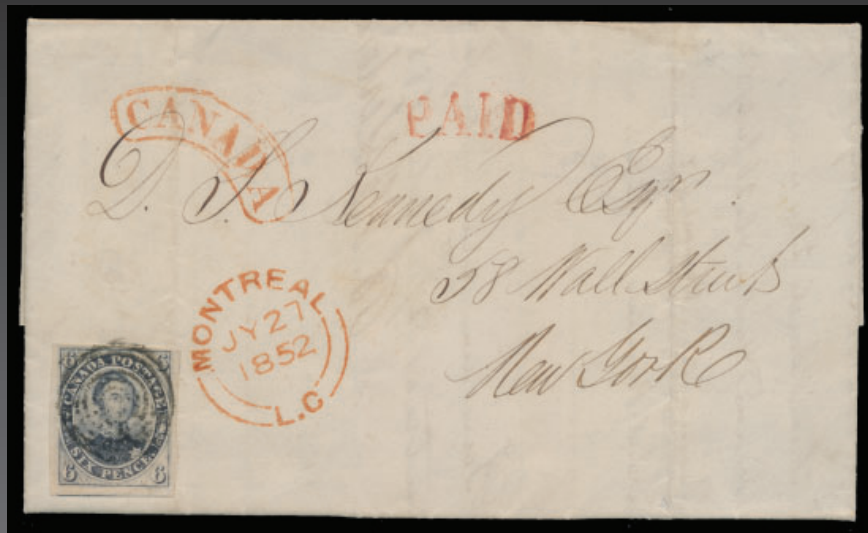 CANADA
PAID
D. S. Kennedy Esqr.
58 Wall Street
New York
MONTREAL
JY 27
1852
L.C
6 6
CANADA POSTAGE
SIX PENCE.
6 6